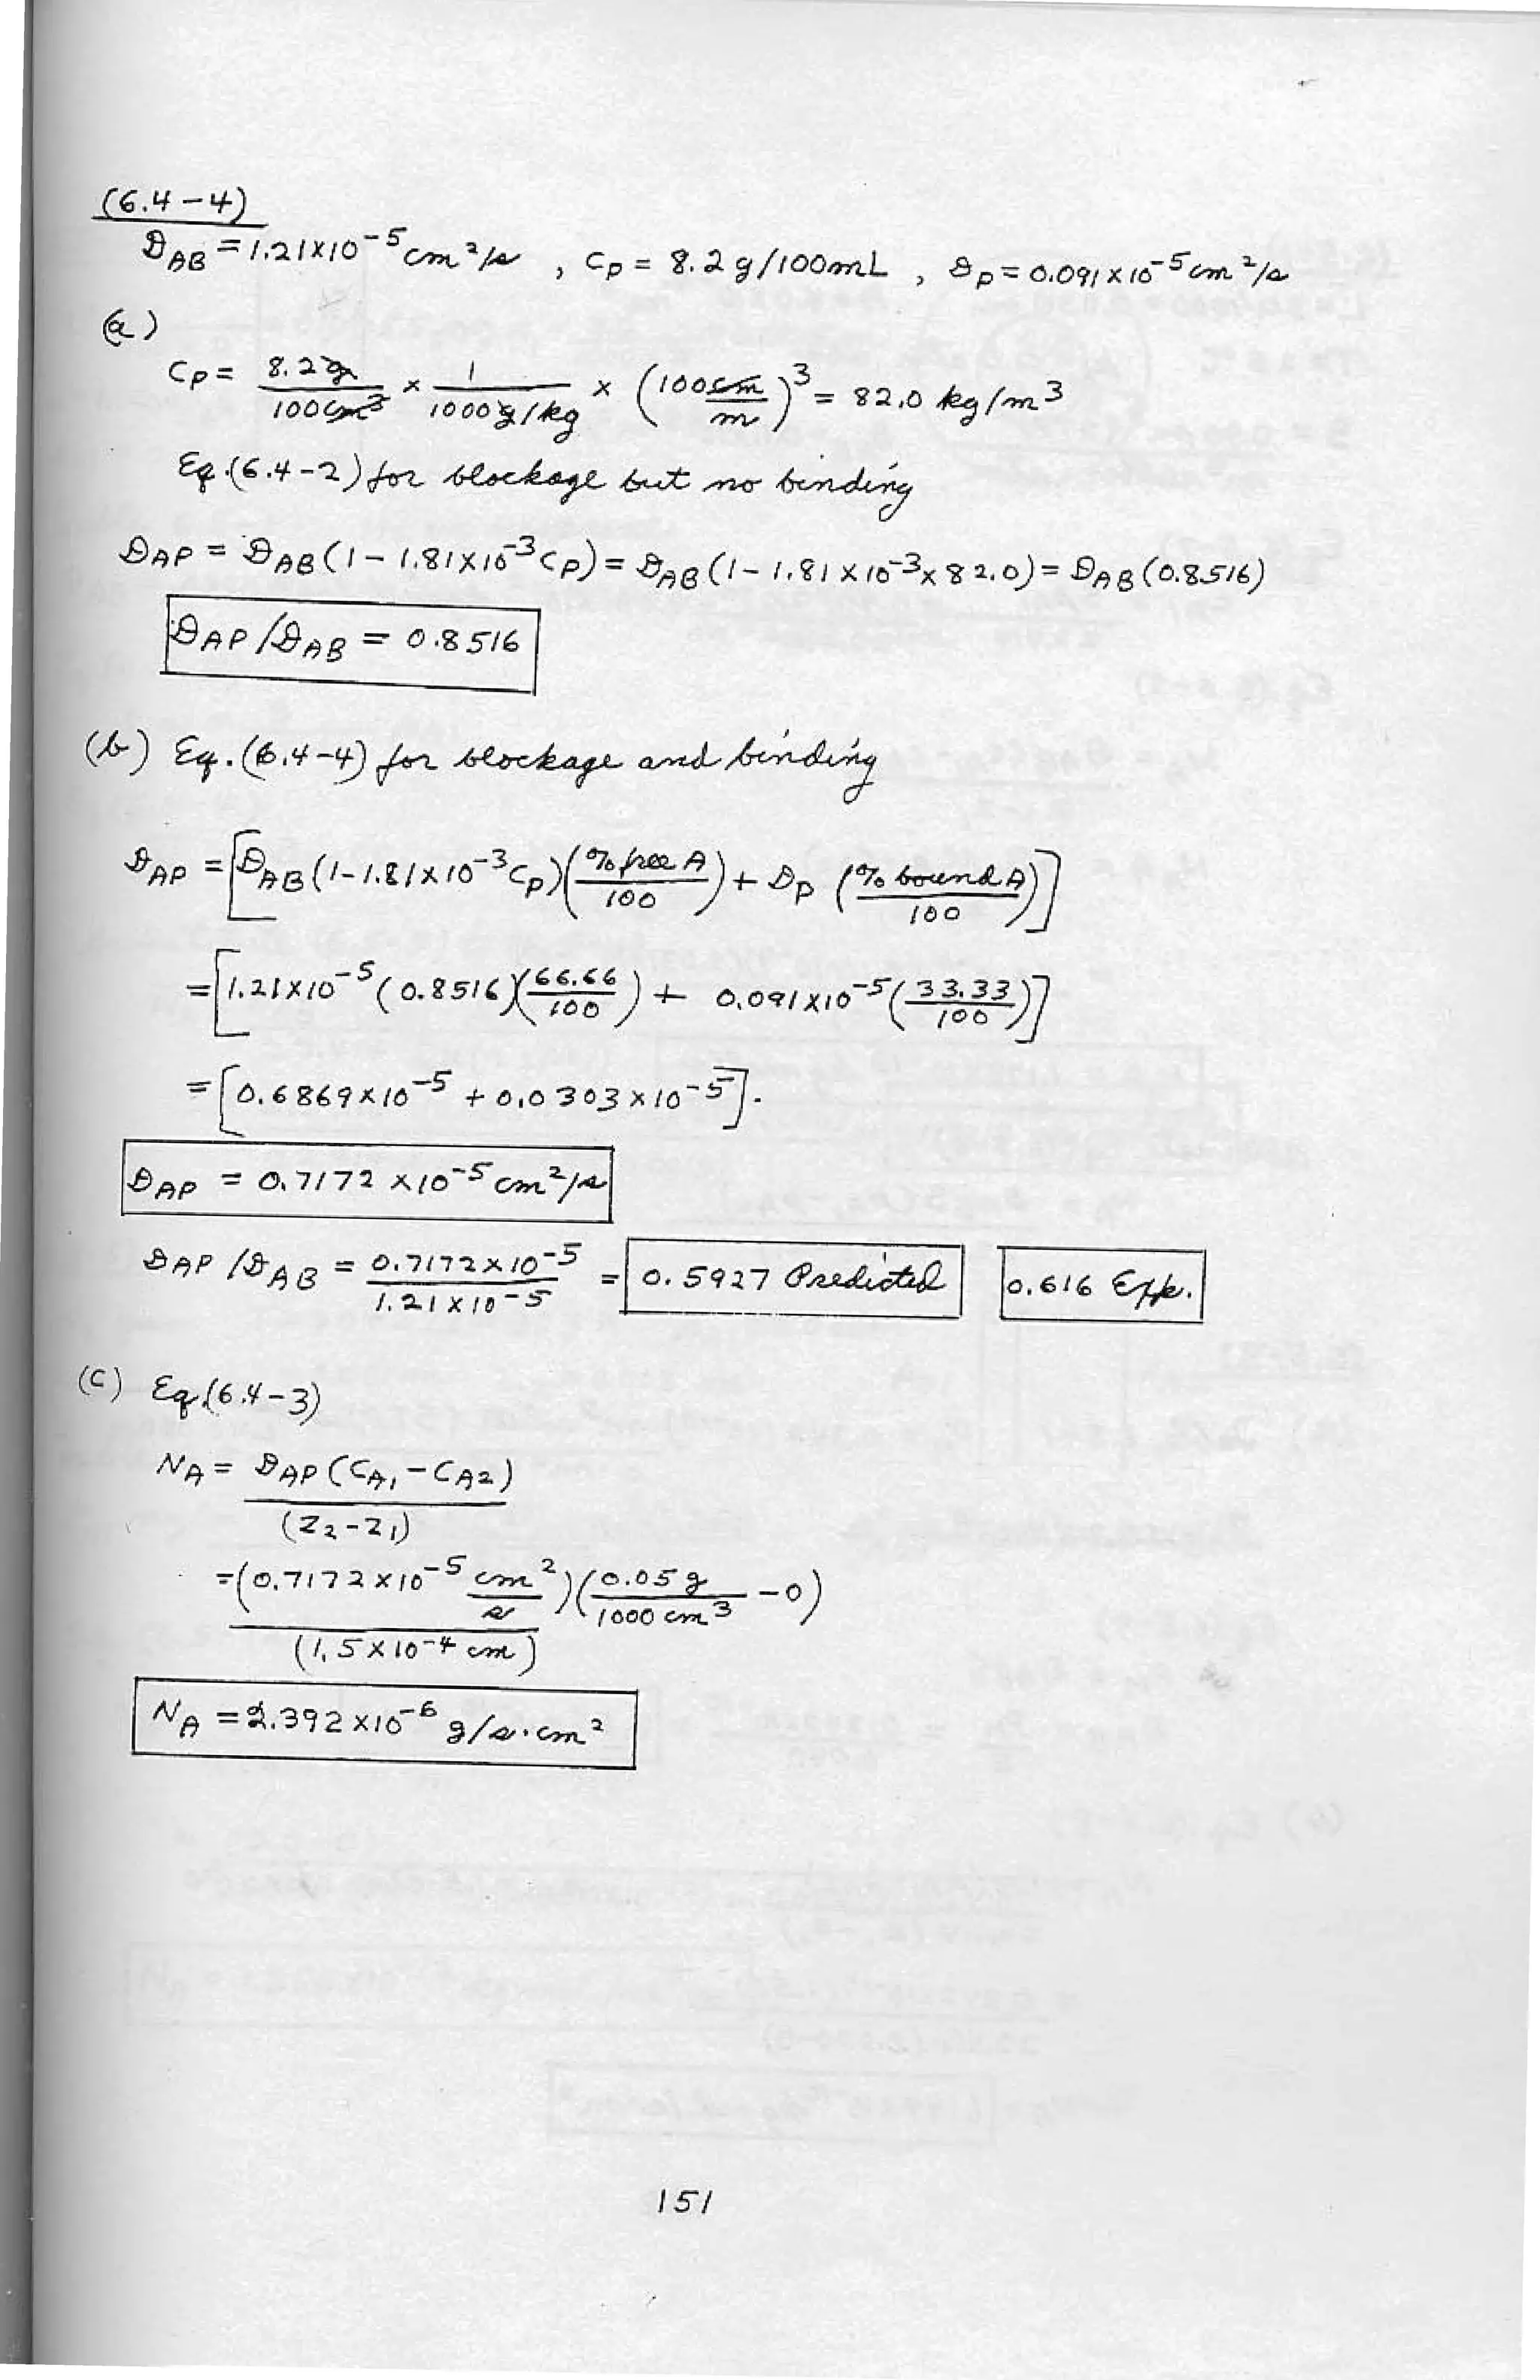 (6.4-4)
𝒟AB = 1.21×10⁻⁵ cm²/s , cP = 8.2 g/100mL , 𝒟P = 0.091×10⁻⁵ cm²/s
(a)
cP = 8.2g/100cm³ × 1/1000g/kg × (100cm/m)³ = 82.0 kg/m³
Eq.(6.4-2) for blockage but no binding
𝒟AP = 𝒟AB(1 - 1.81×10⁻³cP) = 𝒟AB(1 - 1.81×10⁻³×82.0) = 𝒟AB(0.8516)
𝒟AP/𝒟AB = 0.8516
(b) Eq.(6.4-4) for blockage and binding
𝒟AP = [𝒟AB(1-1.81×10⁻³cP)(% free A/100) + 𝒟P (% bound A/100)]
= [1.21×10⁻⁵(0.8516)(66.66/100) + 0.091×10⁻⁵(33.33/100)]
= [0.6869×10⁻⁵ + 0.0303×10⁻⁵].
𝒟AP = 0.7172×10⁻⁵ cm²/s
𝒟AP/𝒟AB = 0.7172×10⁻⁵/1.21×10⁻⁵ = 0.5927 Predicted 0.616 Exp.
(c) Eq.(6.4-3)
NA = 𝒟AP(cA1 - cA2)/(z2-z1)
= (0.7172×10⁻⁵ cm²/s)(0.05g/1000cm³ - 0)/(1.5×10⁻⁴ cm)
NA = 2.392×10⁻⁶ g/s·cm²
151